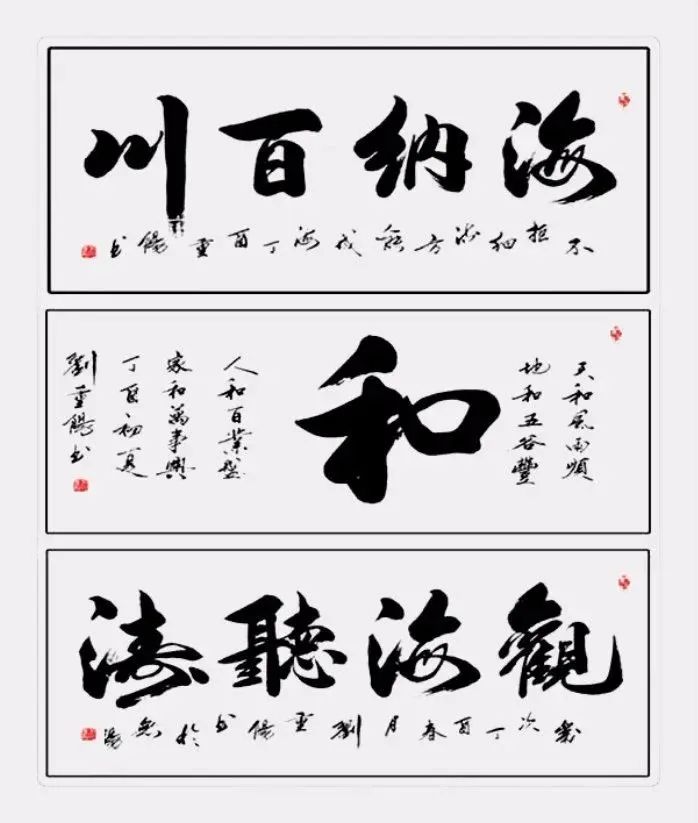 海納百川
不拒細流方能成海丁酉重陽書
和
天和風雨順
地和五谷豐
人和百業盛
家和萬事興
丁酉初夏
劉重陽書
觀海聽濤
歲次丁酉春月劉重陽書於